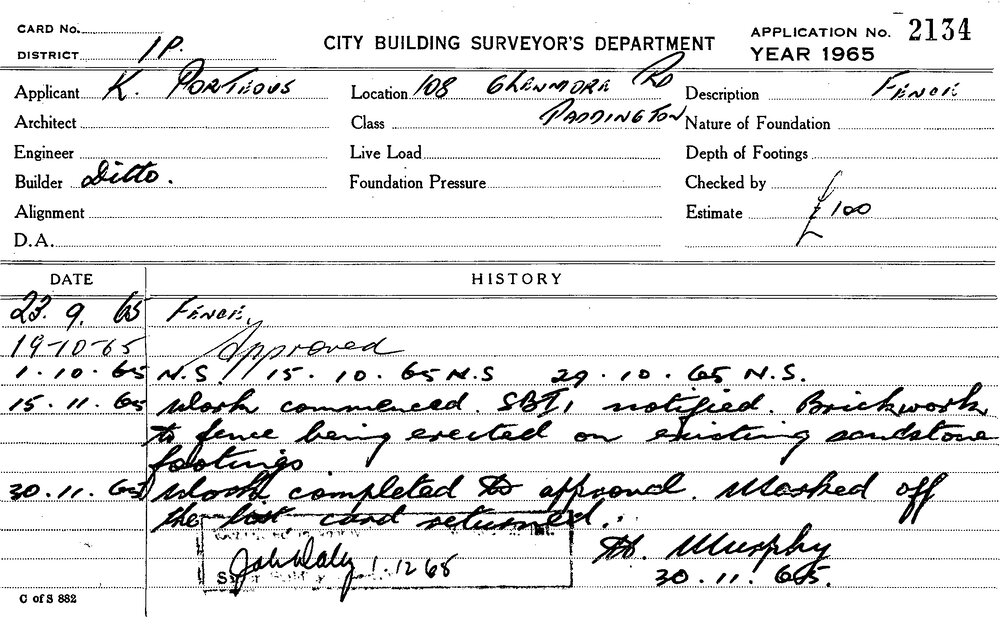 CARD No.
DISTRICT 1P.
CITY BUILDING SURVEYOR'S DEPARTMENT
APPLICATION No. 2134
YEAR 1965
Applicant K. PORTEOUS
Location 108 GLENMORE RD
PADDINGTON
Description FENCE
Architect
Class
Nature of Foundation
Engineer
Live Load
Depth of Footings
Builder Ditto.
Foundation Pressure
Checked by
Alignment
Estimate £100
D.A.
DATE HISTORY
23. 9. 65 FENCE.
19-10-65 Approved
1. 10. 65 N.S. 15. 10. 65 N.S 29. 10. 65 N.S.
15. 11. 65 Work commenced. SBI, notified. Brickwork
to fence being erected on existing sandstone
footings
30. 11. 65 Work completed to approval. Marked off
the list, card returned.
H. Murphy
30. 11. 65.
John Daly 1.12 65
C of S 882